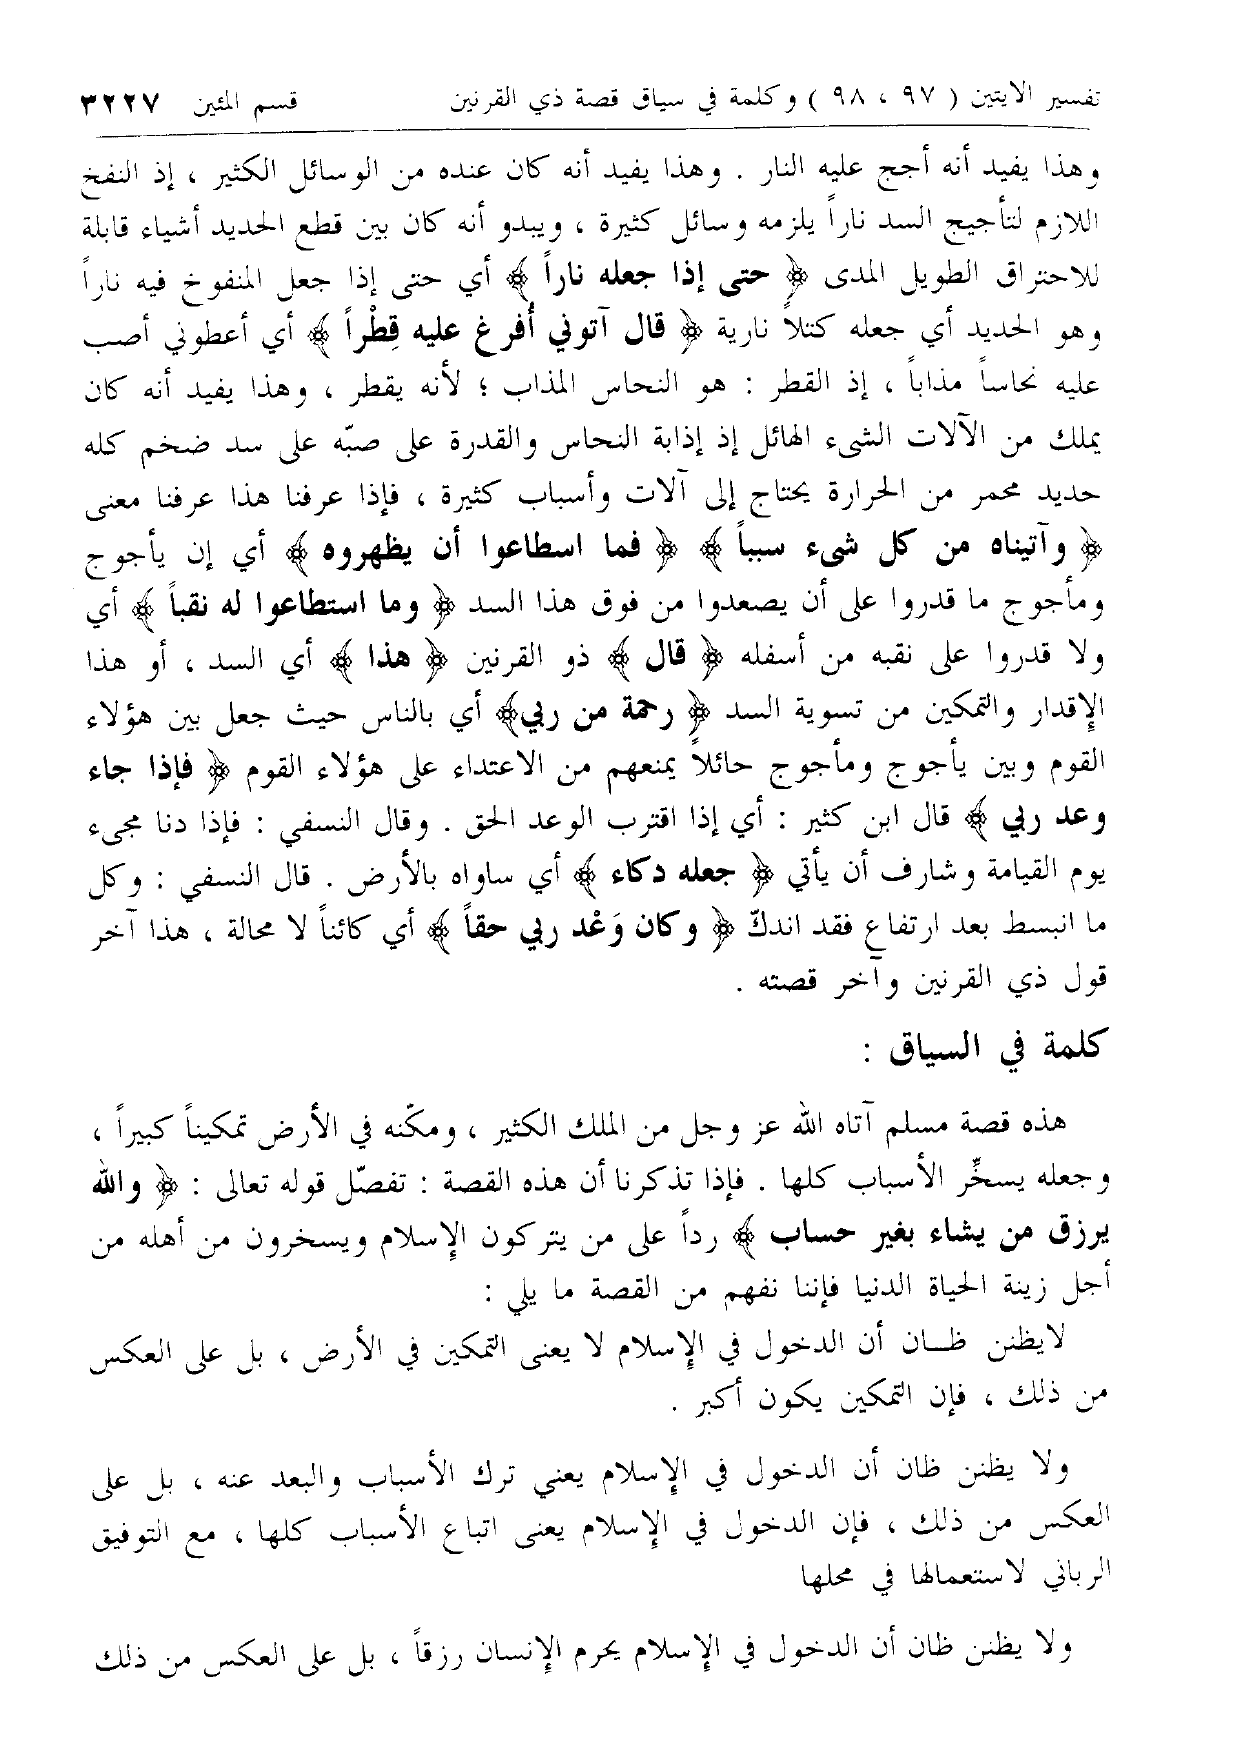 تفسير الآيتين ( ٩٧ ، ٩٨ ) وكلمة في سياق قصة ذي القرنين قسم المئين ٣٢٢٧
وهذا يفيد أنه أجج عليه النار . وهذا يفيد أنه كان عنده من الوسائل الكثير ، إذ النفخ
اللازم لتأجيج السد ناراً يلزمه وسائل كثيرة ، ويبدو أنه كان بين قطع الحديد أشياء قابلة
للاحتراق الطويل المدى ﴿ حتى إذا جعله ناراً ﴾ أي حتى إذا جعل المنفوخ فيه ناراً
وهو الحديد أي جعله كتلاً نارية ﴿ قال آتوني أُفرغ عليه قِطْراً ﴾ أي أعطوني أصب
عليه نحاساً مذاباً ، إذ القطر : هو النحاس المذاب ؛ لأنه يقطر ، وهذا يفيد أنه كان
يملك من الآلات الشىء الهائل إذ إذابة النحاس والقدرة على صبّه على سد ضخم كله
حديد محمر من الحرارة يحتاج إلى آلات وأسباب كثيرة ، فإذا عرفنا هذا عرفنا معنى
﴿ وآتيناه من كل شىء سبباً ﴾ ﴿ فما اسطاعوا أن يظهروه ﴾ أي إن يأجوج
ومأجوج ما قدروا على أن يصعدوا من فوق هذا السد ﴿ وما استطاعوا له نقباً ﴾ أي
ولا قدروا على نقبه من أسفله ﴿ قال ﴾ ذو القرنين ﴿ هذا ﴾ أي السد ، أو هذا
الإقدار والتمكين من تسوية السد ﴿ رحمة من ربي﴾ أي بالناس حيث جعل بين هؤلاء
القوم وبين يأجوج ومأجوج حائلاً يمنعهم من الاعتداء على هؤلاء القوم ﴿ فإذا جاء
وعد ربي ﴾ قال ابن كثير : أي إذا اقترب الوعد الحق . وقال النسفي : فإذا دنا مجىء
يوم القيامة وشارف أن يأتي ﴿ جعله دكاء ﴾ أي ساواه بالأرض . قال النسفي : وكل
ما انبسط بعد ارتفاع فقد اندكّ ﴿ وكان وَعْد ربي حقاً ﴾ أي كائناً لا محالة ، هذا آخر
قول ذي القرنين وآخر قصته .
كلمة في السياق :
هذه قصة مسلم آتاه الله عز وجل من الملك الكثير ، ومكّنه في الأرض تمكيناً كبيراً ،
وجعله يسخِّر الأسباب كلها . فإذا تذكرنا أن هذه القصة : تفصّل قوله تعالى : ﴿ والله
يرزق من يشاء بغير حساب ﴾ رداً على من يتركون الإسلام ويسخرون من أهله من
أجل زينة الحياة الدنيا فإننا نفهم من القصة ما يلي :
لايظنن ظــان أن الدخول في الإسلام لا يعنى التمكين في الأرض ، بل على العكس
من ذلك ، فإن التمكين يكون أكبر .
ولا يظنن ظان أن الدخول في الإسلام يعني ترك الأسباب والبعد عنه ، بل على
العكس من ذلك ، فإن الدخول في الإسلام يعنى اتباع الأسباب كلها ، مع التوفيق
الرباني لاستعمالها في محلها
ولا يظنن ظان أن الدخول في الإسلام يحرم الإنسان رزقاً ، بل على العكس من ذلك